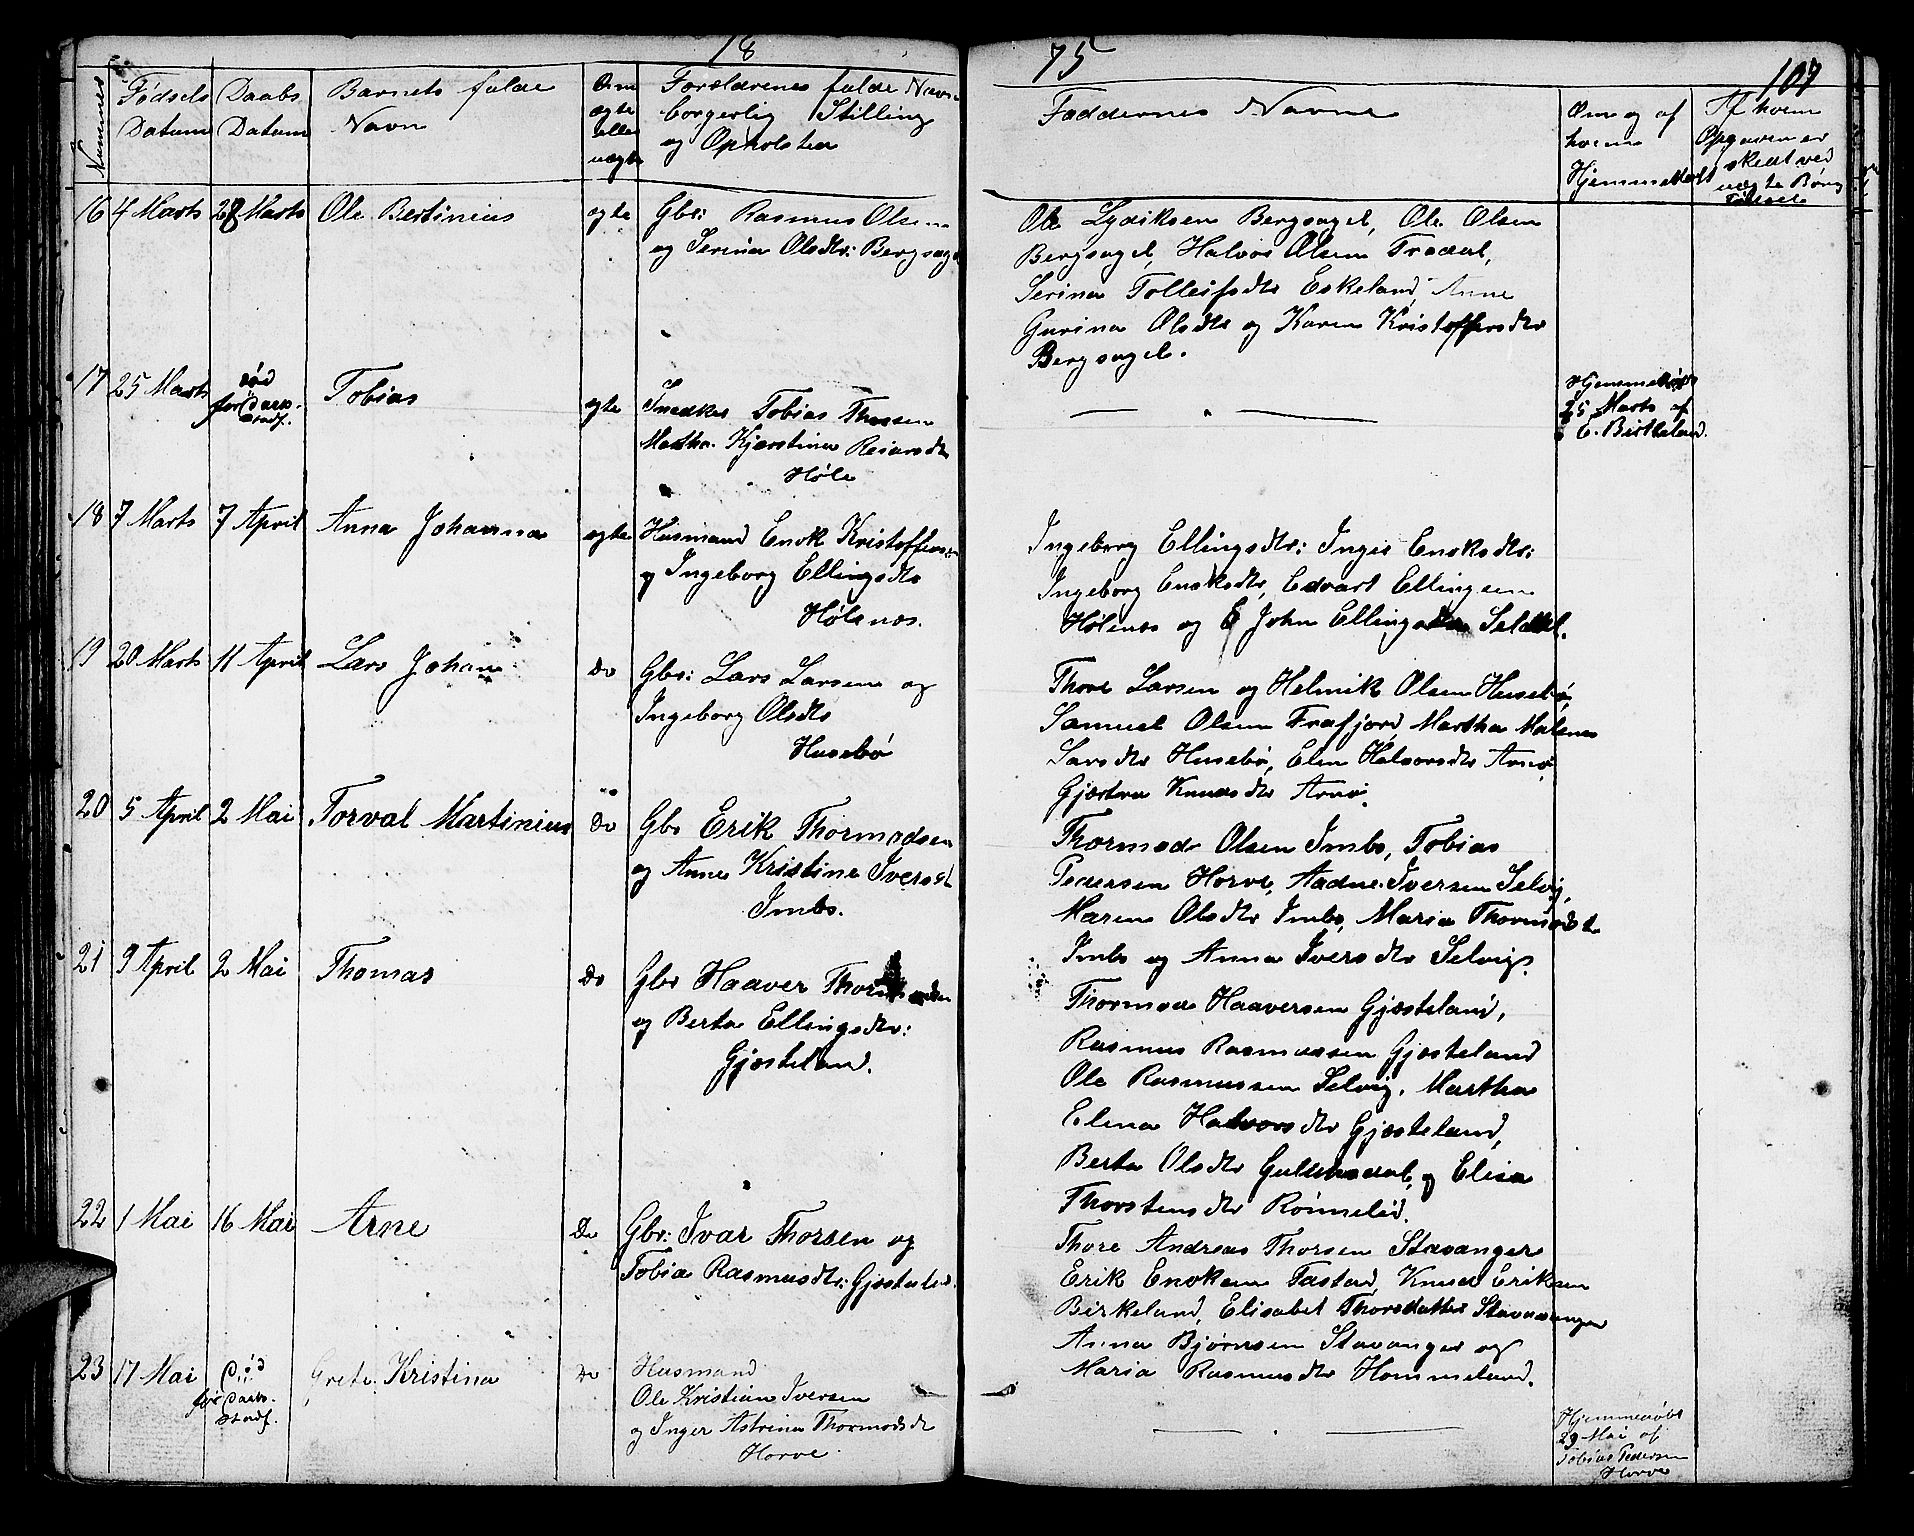 18
75
107
Nummer
Fødsels Datum
Daabs Datum
Barnets fulde Navn
Om ægte eller uægte
Forældrenes fulde Navn
borgerlig Stilling
og Opholsten
Faddernes Navne
Om og af
hvem
Hjemmedøbt
Af hvem
Opgaven er
skeat ved
uægte Børns
Fødsel
16 4 Marts 28 Marts Ole Bertinius ægte Gbr: Rasmus Olsen
og Serina Olsdtr: Bergsagel
Ole Lydiksen Bergsagel, Ole Olsen
Bergsagel, Halvor Olsen Trædal,
Serina Tolleifsdtr Eskeland, Anne
Gurina Olsdtr og Karen Kristoffersdtr
Bergsagel.
17 25 Marts død før Daabs stadf. Tobias ægte Snedker Tobias Thorsen
Martha Kjærstine Reiarsdtr
Høle
Hjemmedøbt
25 Marts af
E. Birkeland.
18 7 Marts 7 April Anna Johanna ægte Husmand Enok Kristoffersen
og Ingeborg Ellingsdtr
Hølenæs.
Ingeborg Ellingsdtr: Inger Enoksdtr:
Ingeborg Enoksdtr, Edvart Ellingsen
Hølenæs og E John Ellingsen Seldal.
19 20 Marts 11 April Lars Johan Do Gbr: Lars Larsen og
Ingeborg Olsdtr
Husebø
Thore Larsen og Helmik Olsen Husebø,
Samuel Olsen Frafjord, Martha Malene
Larsdtr Husebø, Elen Halvorsdtr
Gjærtru Knudsdtr
20 5 April 2 Mai Torval Martinius Do Gbr Erik Thormodsen
og Anne Kristine Iversdt
Imbs.
Thormod Olsen Imbs, Tobias
Pedersen Horve, Aadne Iversen Selvig,
Maren Olsdtr Imbs, Maria Thormodsdt
Imbs og Anna Iversdtr Selvig.
21 9 April 2 Mai Thomas Do Gbr Haaver Thormodsen
og Berta Ellingsdtr:
Gjesteland.
Thormod Haaversen Gjesteland,
Rasmus Rasmussen Gjesteland
Ole Rasmussen Selvig, Martha
Elena Halvorsdtr Gjesteland,
Berta Olsdtr og Elisa
Thorstensdtr Rønnelid.
22 1 Mai 16 Mai Arne Do Gbr: Ivar Thorsen og
Tobia Rasmusdtr: Gjesteland.
Thore Andreas Thorsen Stavanger
Erik Enoksen Tastad, Knud Eriksen
Birkeland, Elisabet Thorsdatter Stavanger
Anna Bjørnsen Stavanger og
Maria Rasmusdtr Hommeland.
23 17 Mai Død før Daabs- stadf. Grete Kristina Do Husmand
Ole Kristian Iversen
og Inger Astrina Thormodsdt
Horve
Hjemmedøbt
29 Mai af
Tobias Pedersen
Horve